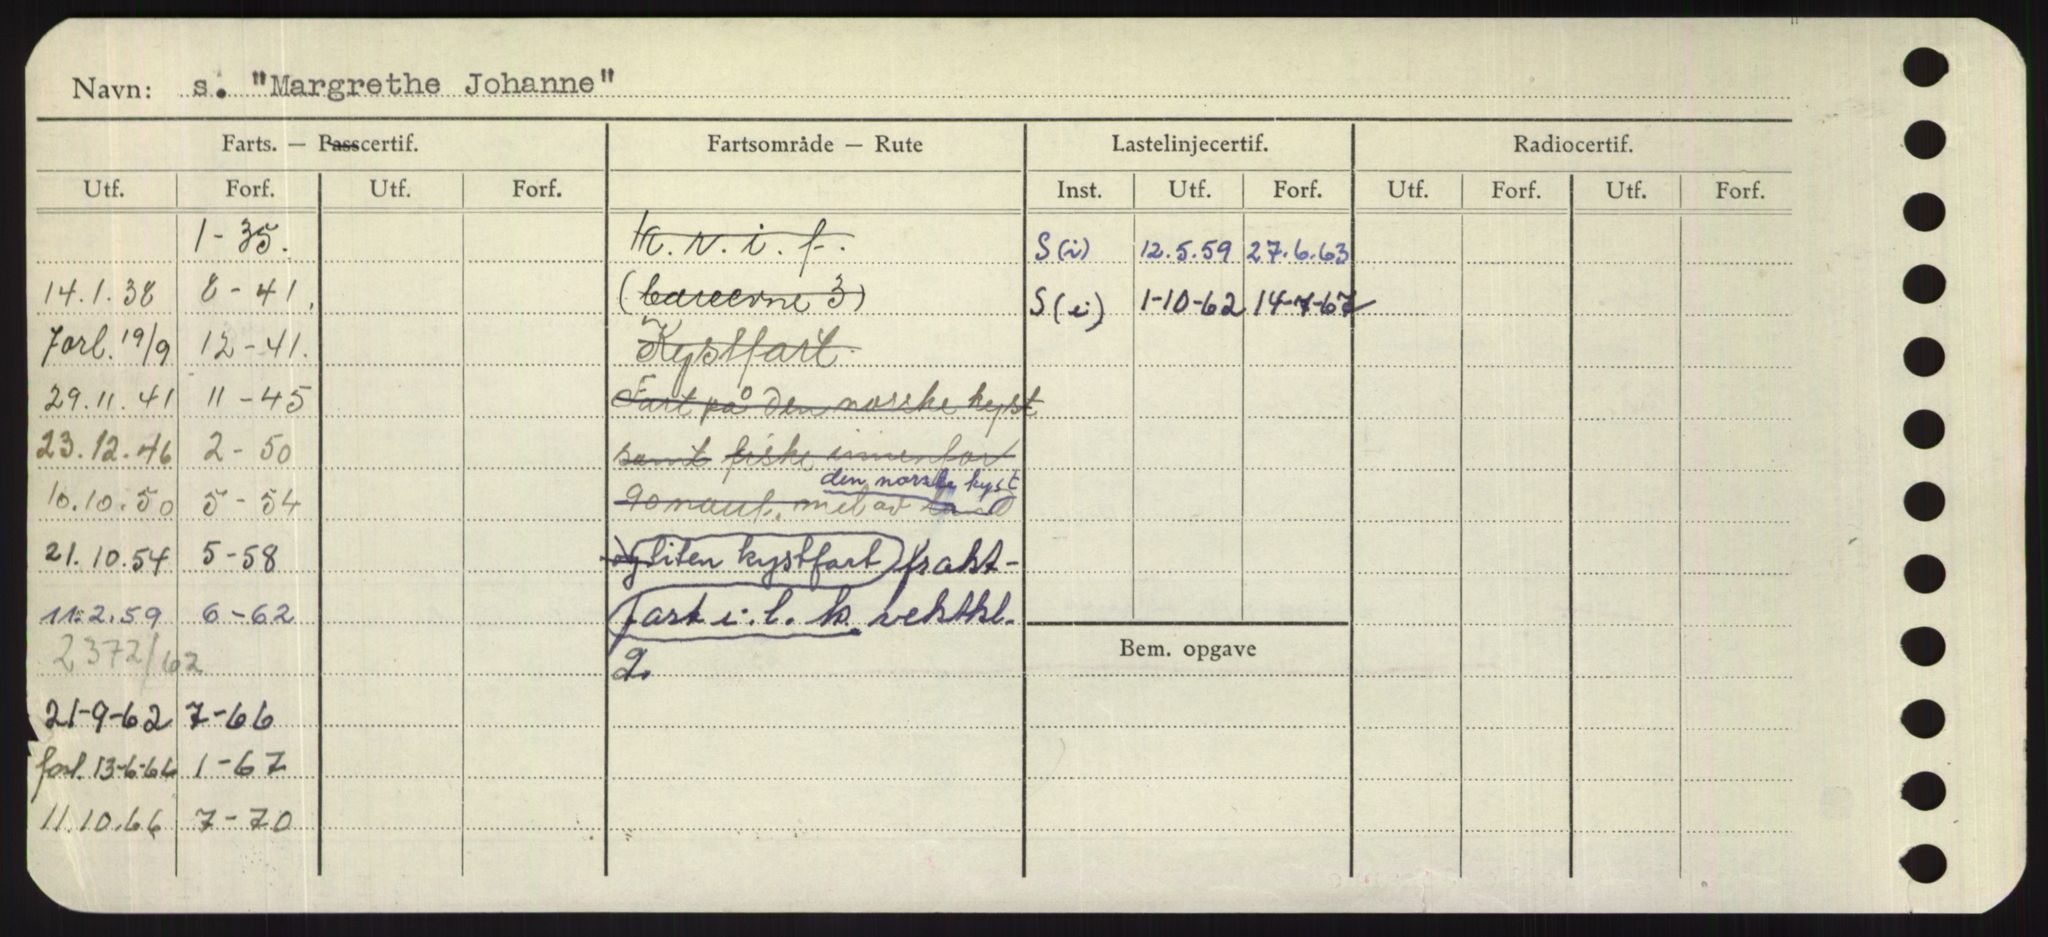 Navn: s. "Margrethe Johanne"
Farts. — Passcertif. Fartsområde — Rute Lastelinjecertif. Radiocertif.
Utf. Forf. Utf. Forf. Inst. Utf. Forf. Utf. Forf. Utf. Forf.
1-35. k.v.i.f. S(i) 12.5.59 27.6.63
14.1.38 8-41. 3) S(i) 1-10-62 14-7-67
Forl. 19/9 12-41. Kystfart
29.11.41 11-45 Fart på den norske kyst
23.12.46 2-50 samt fiske innenfor
den norske kyst
10.10.50 5-54 90 naut. mil av land
21.10.54 5-58 og liten kystfart frakt-
11.2.59 6-62 fart i.l.k. vektkl.
2372/62 2.
Bem. opgave
21-9-62 7-66
forl. 13-6-66 1-67
11.10.66 7-70